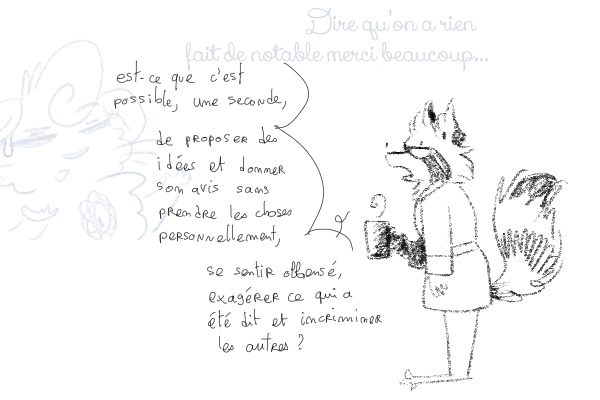 Dire qu'on a rien
fait de notable merci beaucoup...
est-ce que c'est
possible, une seconde,
de proposer des
idées et donner
son avis sans
prendre les choses
personnellement,
se sentir offensé,
exagérer ce qui a
été dit et incriminer
les autres ?